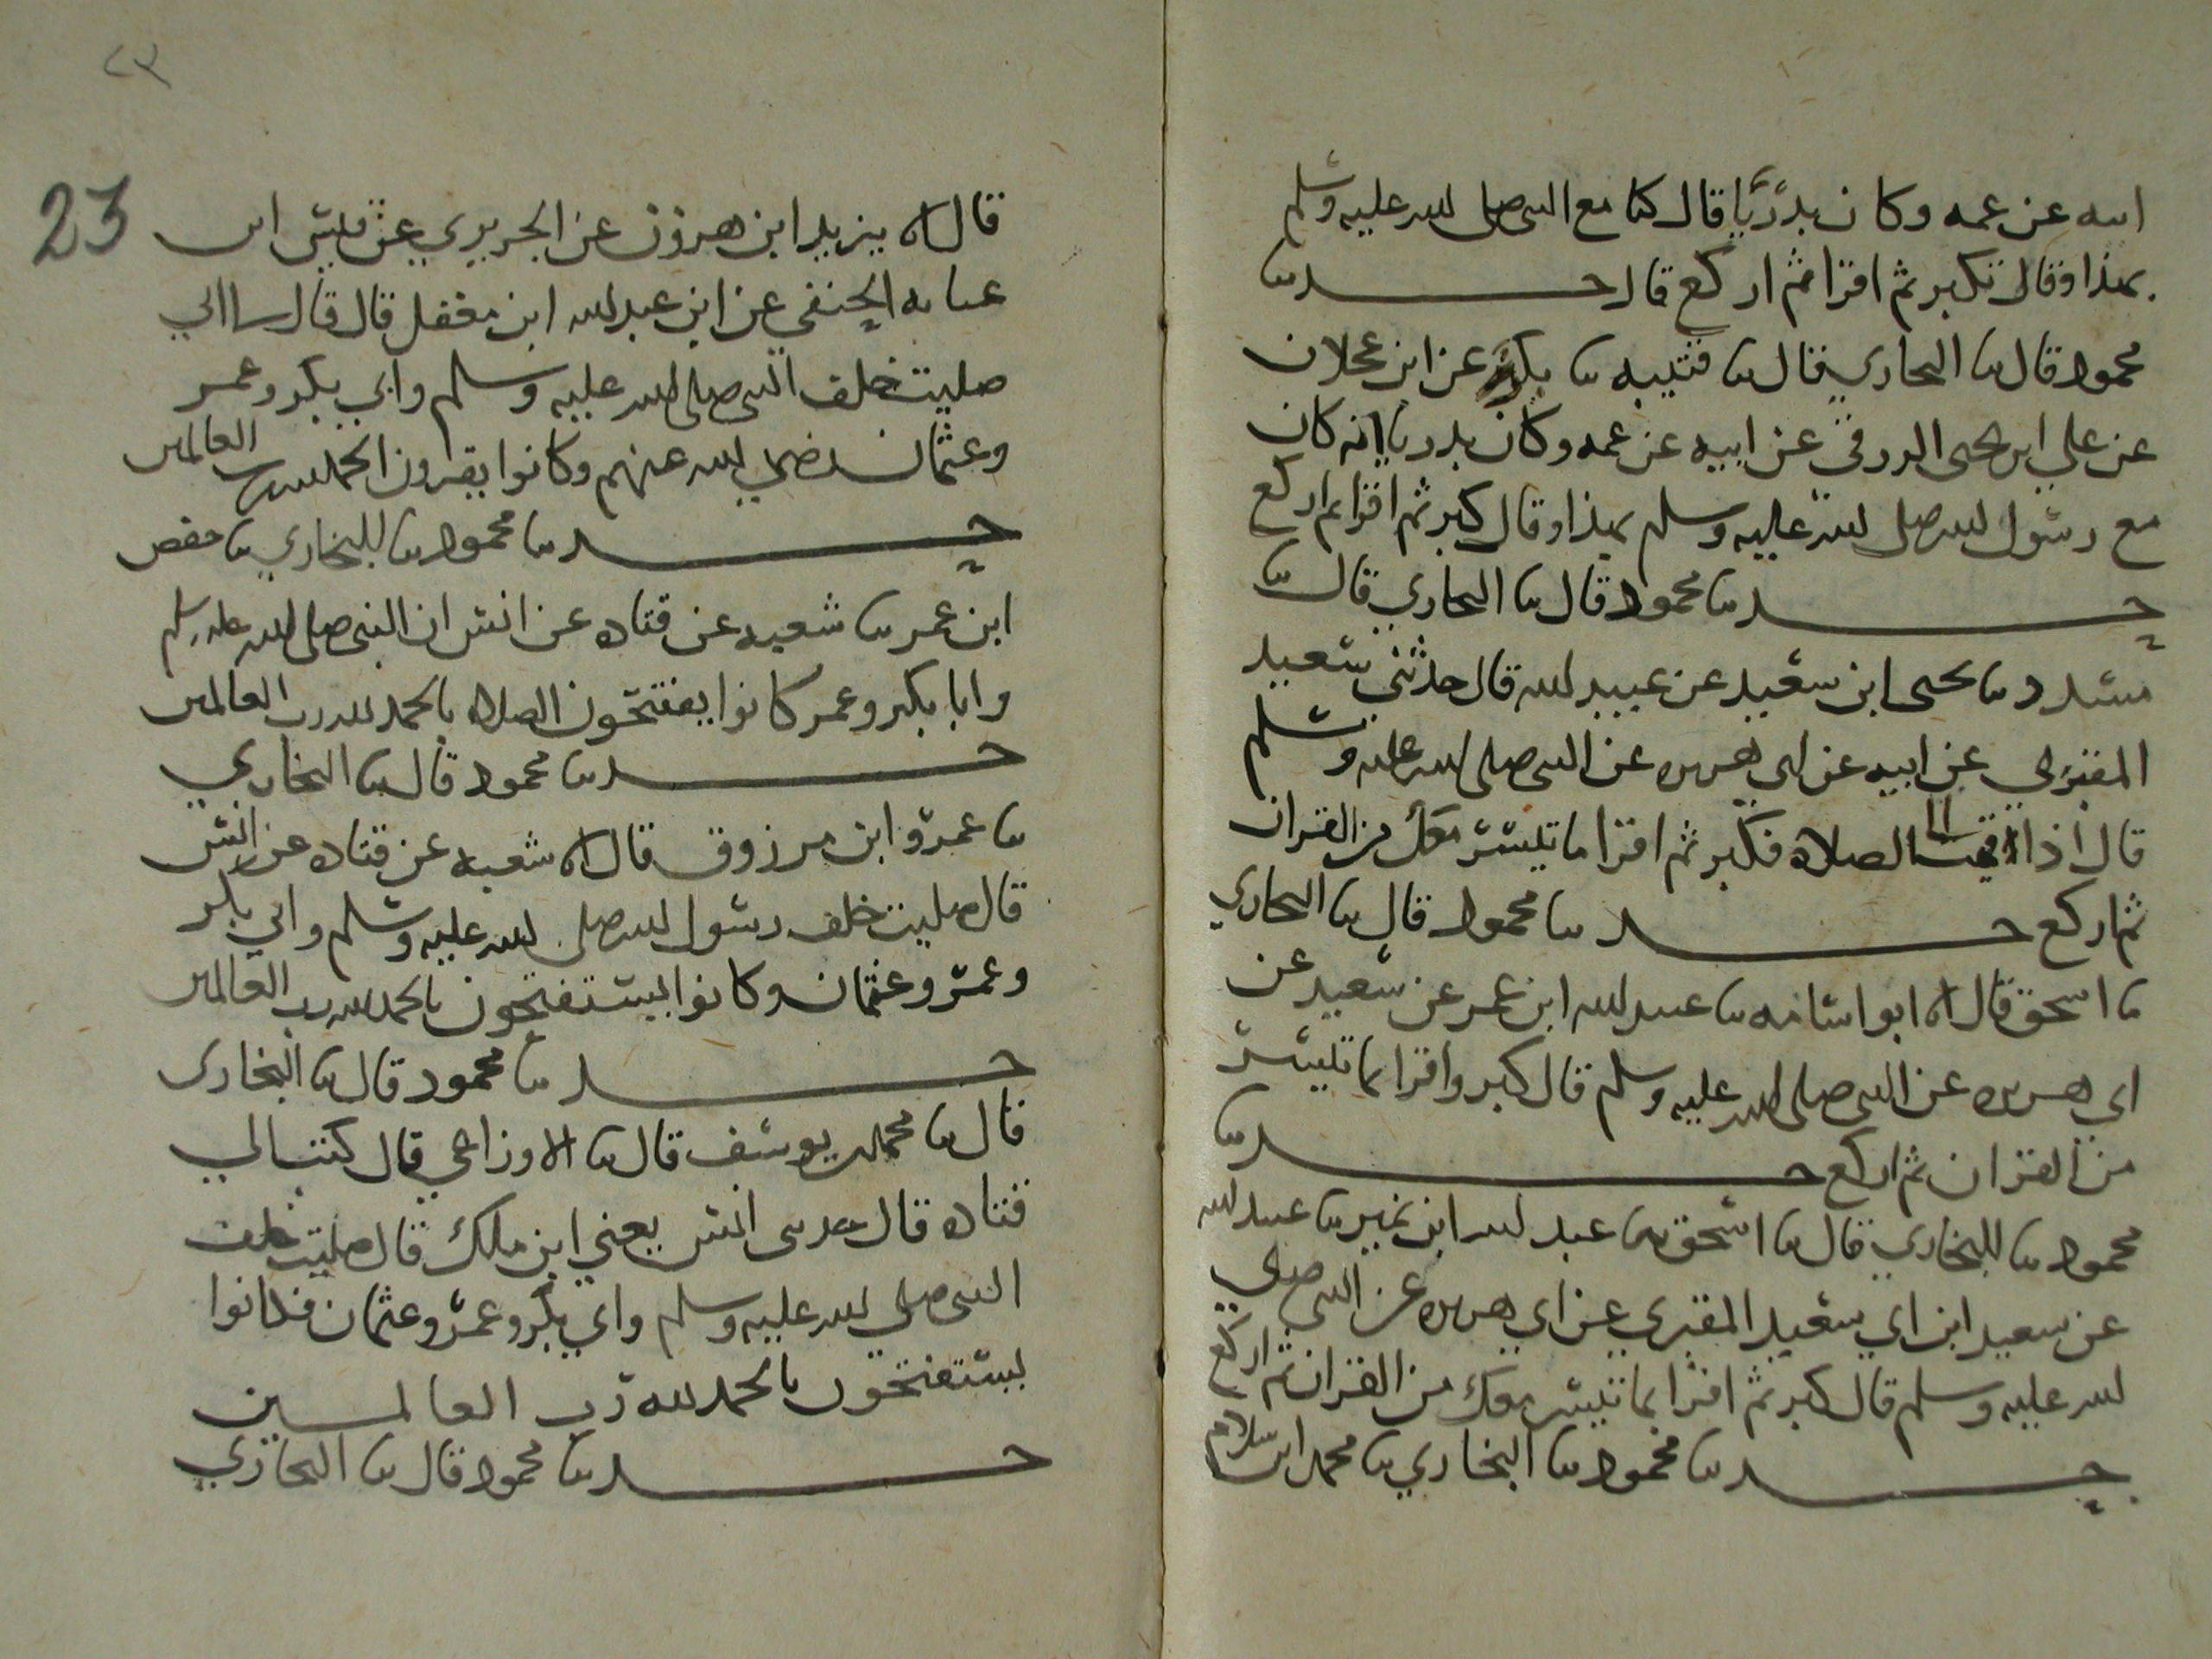 ابيه عن عمه وكان بدريا قال كنا مع النبي صلى الله عليه وسلم
بهذا وقال تكبر ثم اقرا ثم اركع قال حدثنا
محمود قال ثنا البخاري قال ثنا قتيبه ثنا بكر عن ابن عجلان
عن علي ابن يحيى الزرقي عن ابيه عن عمه وكان بدريا انه كان
مع رسول الله صلى الله عليه وسلم بهذا وقال كبر ثم اقرا ثم اركع
حدثنا محمود قال ثنا البخاري قال ثنا
مسدد ثنا يحيى ابن سعيد عن عبيد الله قال حدثني سعيد
المقبري عن ابيه عن ابي هريره عن النبي صلى الله عليه وسلم
قال اذا اقيمت الصلاه فكبر ثم اقرا ما تيسر معك من القران
ثم اركع حدثنا محمود قال ثنا البخاري
ثنا اسحق قال انا ابو اسامه ثنا عبيد الله ابن عمر عن سعيد عن
ابي هريره عن النبي صلى الله عليه وسلم قال كبر واقرا بما تيسر
من القران ثم اركع حدثنا
محمود ثنا البخاري قال ثنا اسحق ثنا عبد الله ابن نمير ثنا عبيد الله
عن سعيد ابن ابي سعيد المقبري عن ابي هريره عن النبي صلى
الله عليه وسلم قال كبر ثم اقرا بما تيسر معك من القران ثم اركع
حدثنا محمود ثنا البخاري ثنا محمد ابن سلام
٢٣
23
قال انا يزيد ابن هرون عن الجريري عن قيس ابن
عبايه الحنفي عن ابن عبد الله ابن مغفل قال قال لي ابي
صليت خلف النبي صلى الله عليه وسلم وابي بكر وعمر
وعثمان رضي الله عنهم وكانوا يقرون الحمد لله رب العالمين
حدثنا محمود ثنا البخاري ثنا حفص
ابن عمر ثنا شعبه عن قتاده عن انس ان النبي صلى الله عليه وسلم
وابا بكر وعمر كانوا يفتتحون الصلاه بالحمد لله رب العالمين
حدثنا محمود قال ثنا البخاري
ثنا عمرو ابن مرزوق قال انا شعبه عن قتاده عن انس
قال صليت خلف رسول الله صلى الله عليه وسلم وابي بكر
وعمر وعثمان وكانوا يستفتحون بالحمد لله رب العالمين
حدثنا محمود قال ثنا البخاري
قال ثنا محمد بن يوسف قال ثنا الاوزاعي قال كتب الي
قتاده قال حدثني انس يعني ابن ملك قال صليت خلف
النبي صلى الله عليه وسلم وابي بكر وعمر وعثمان فكانوا
يستفتحون بالحمد لله رب العالمين
حدثنا محمود قال ثنا البخاري